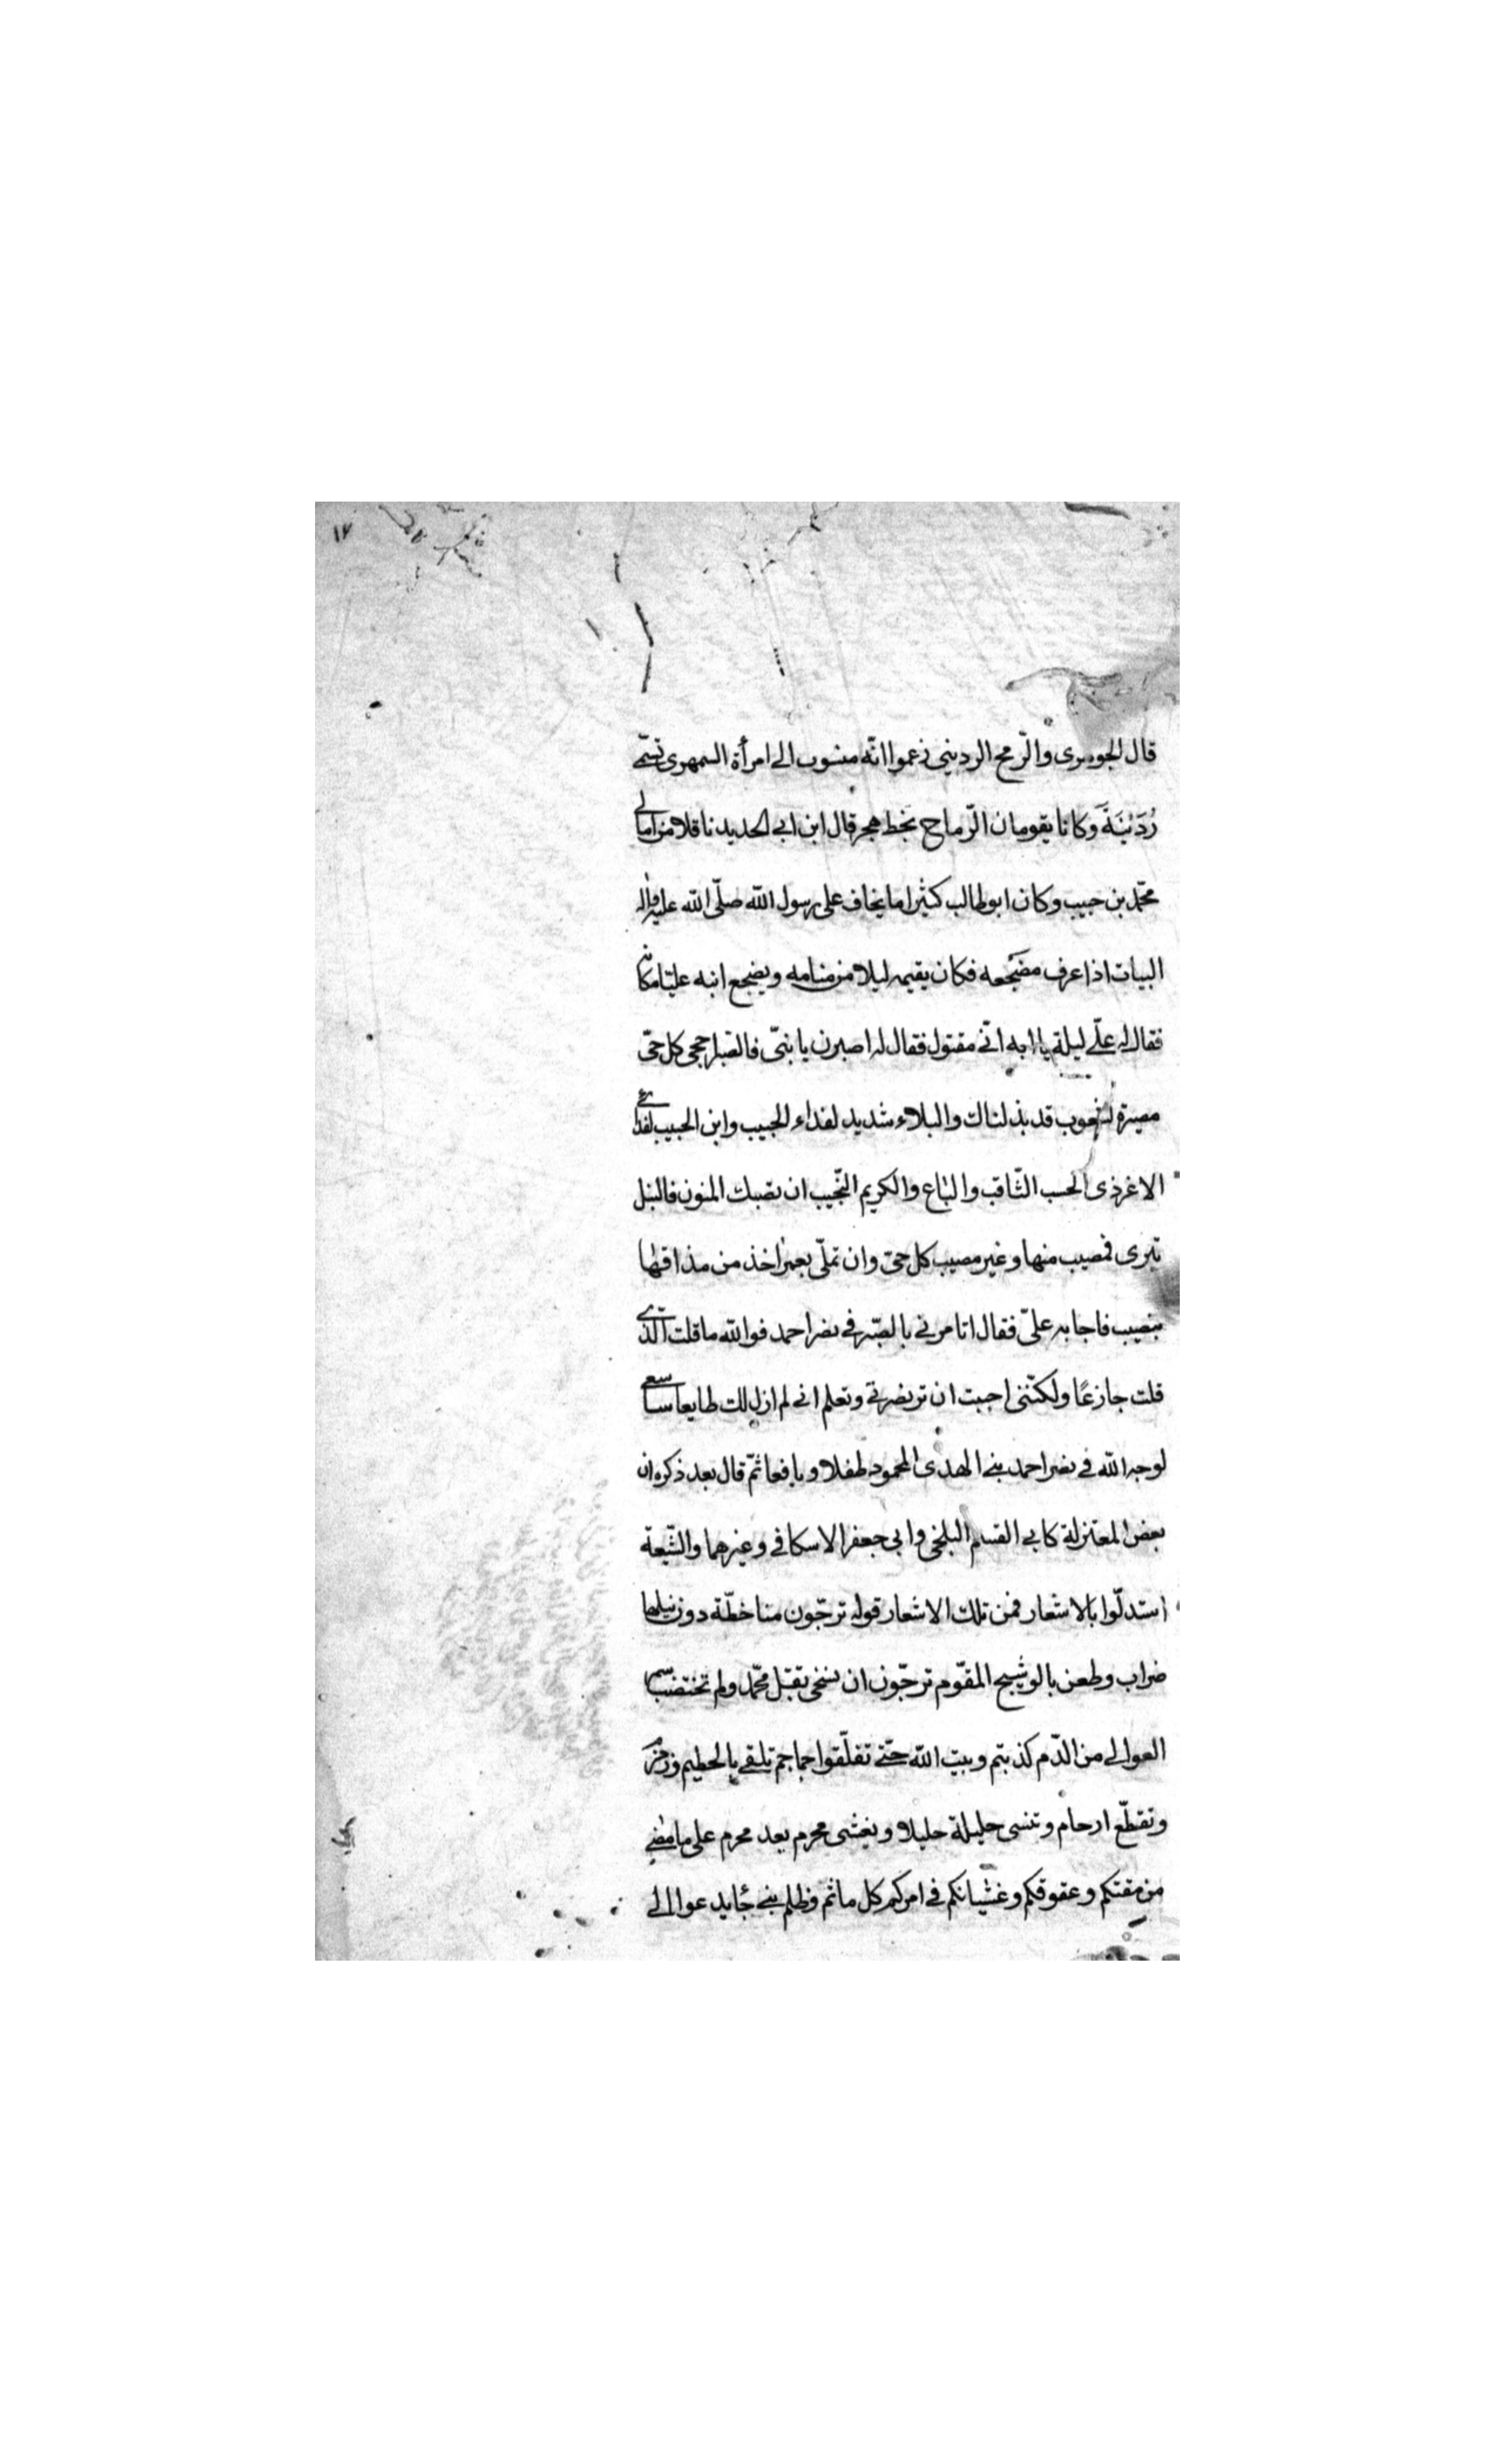 ١٧
قال الجوهرى والرّمح الردينى زعموا انّه منسوب الى امرأة السمهرى تسمّى
رُدَيْنَةَ وكانا يقومان الرّماح بخط هجر قال ابن ابى الحديد ناقلا من امالى
محمّد بن حبيب وكان ابو طالب كثيرا ما يخاف على رسول الله صلّى الله عليه واله
البيات اذا عرف مضجعه فكان يقيمه ليلا من منامه ويضجع ابنه عليّا مكانه
فقال له علّى ليلة يا ابه انّى مقتول فقال له اصبرن يا بنىّ فالصّبر احجى كل حىّ
مصيره لشعوب قد بذلناك والبلاء شديد لفداء الحبيب وابن الحبيب لفداء
الاغر ذى الحسب الثّاقب والباع والكريم النّجيب ان تصبك المنون فالنبل
تبرى فمصيب منها وغير مصيب كل حىّ وان تملّى بعمر اخذ من مذاقها
بنصيب فاجابه علىّ فقال اتامرنى بالصّبر فى نصر احمد فوالله ما قلت الّذى
قلت جازعًا ولكنّنى احببت ان تر نصرتى وتعلم انى لم ازل لك طايعا ساسعى
لوجه الله فى نصر احمد بنى الهدى المحمود طفلا ويافعا ثمّ قال بعد ذكره ان
بعض المعتزلة كابى القسم البلخى وابى جعفر الاسكافى وغيرهما والشّيعة
استدلّوا بالاشعار فمن تلك الاشعار قوله ترجّون منا خطّة دون نيلها
ضراب وطعن بالوشيج المقوّم ترجّون ان نسخى بقتل محمّد ولم تختضب سمر
العوالى من الدّم كذبتم وبيت الله حتّى تفلّقوا جماجم تلقى بالحطيم وزمزم
وتقطّع ارحام وتنسى حليلة حليلا ويغشى محرم بعد محرم على ما مضى
من مقتكم وعقوقكم وغشيانكم فى امركم كل ماثم وظلم بنى جايد عوا الى